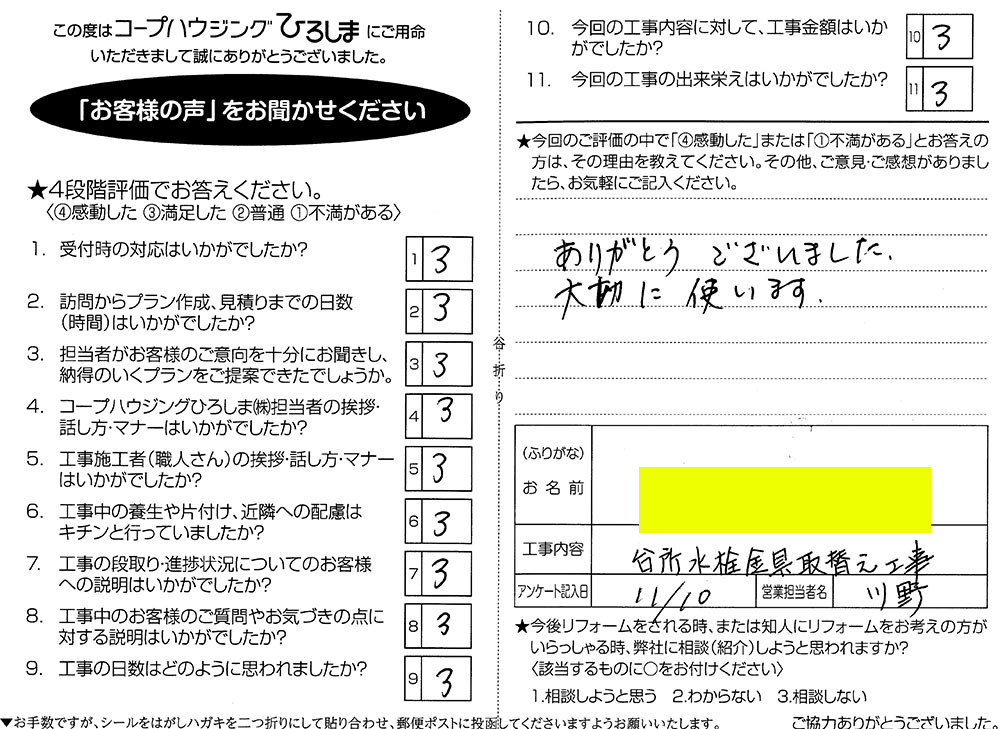 この度はコープハウジングひろしまにご用命
いただきまして誠にありがとうございました。
「お客様の声」をお聞かせください
★4段階評価でお答えください。
〈④感動した ③満足した ②普通 ①不満がある〉
1. 受付時の対応はいかがでしたか? 1 3
2. 訪問からプラン作成、見積りまでの日数
(時間)はいかがでしたか? 2 3
3. 担当者がお客様のご意向を十分にお聞きし、
納得のいくプランをご提案できたでしょうか。 3 3
4. コープハウジングひろしま㈱担当者の挨拶・
話し方・マナーはいかがでしたか? 4 3
5. 工事施工者(職人さん)の挨拶・話し方・マナー
はいかがでしたか? 5 3
6. 工事中の養生や片付け、近隣への配慮は
キチンと行っていましたか? 6 3
7. 工事の段取り・進捗状況についてのお客様
への説明はいかがでしたか? 7 3
8. 工事中のお客様のご質問やお気づきの点に
対する説明はいかがでしたか? 8 3
9. 工事の日数はどのように思われましたか? 9 3
▼お手数ですが、シールをはがしハガキを二つ折りにして貼り合わせ、郵便ポストに投函してくださいますようお願いいたします。
谷折り
10. 今回の工事内容に対して、工事金額はいか
がでしたか? 10 3
11. 今回の工事の出来栄えはいかがでしたか? 11 3
★今回のご評価の中で「④感動した」または「①不満がある」とお答えの
方は、その理由を教えてください。その他、ご意見・ご感想がありまし
たら、お気軽にご記入ください。
ありがとう ございました.
大切に 使います.
(ふりがな)
お名前
工事内容 台所水栓金具取替え工事
アンケート記入日 11/10 営業担当者名 川野
★今後リフォームをされる時、または知人にリフォームをお考えの方が
いらっしゃる時、弊社に相談(紹介)しようと思われますか?
〈該当するものに○をお付けください〉
1.相談しようと思う 2.わからない 3.相談しない
ご協力ありがとうございました。